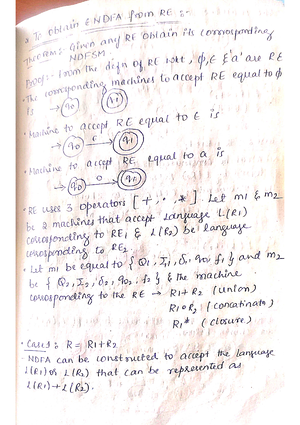 * To obtain ENDFA from RE :-
Theorem: Given any RE obtain its corresponding
NDFSM.
Proof:- From the defn of RE wkt, ϕ, ϵ & 'a' are RE
• The corresponding machines to accept RE equal to ϕ
is → q0 q1
• Machine to accept RE equal to ϵ is
→ q0 ϵ q1
• Machine to accept RE equal to a is
→ q0 a q1
• RE uses 3 operators [+, ·, *] Let m1 & m2
be 2 machines that accept language L(R1)
corresponding to RE1 & L(R2) be language
corresponding to RE2
• Let m1 be equal to {Q1, Σ1, δ1, q01, f1} and m2
be {Q2, Σ2, δ2, q02, f2} & the machine
corresponding to the RE → R1+R2 (Union)
R1∘R2 (concatinate)
R1* (closure)
• Case 1 : R = R1+R2
NDFA can be constructed to accept the language
L(R1) or L(R2) that can be represented as
L(R1)+L(R2).